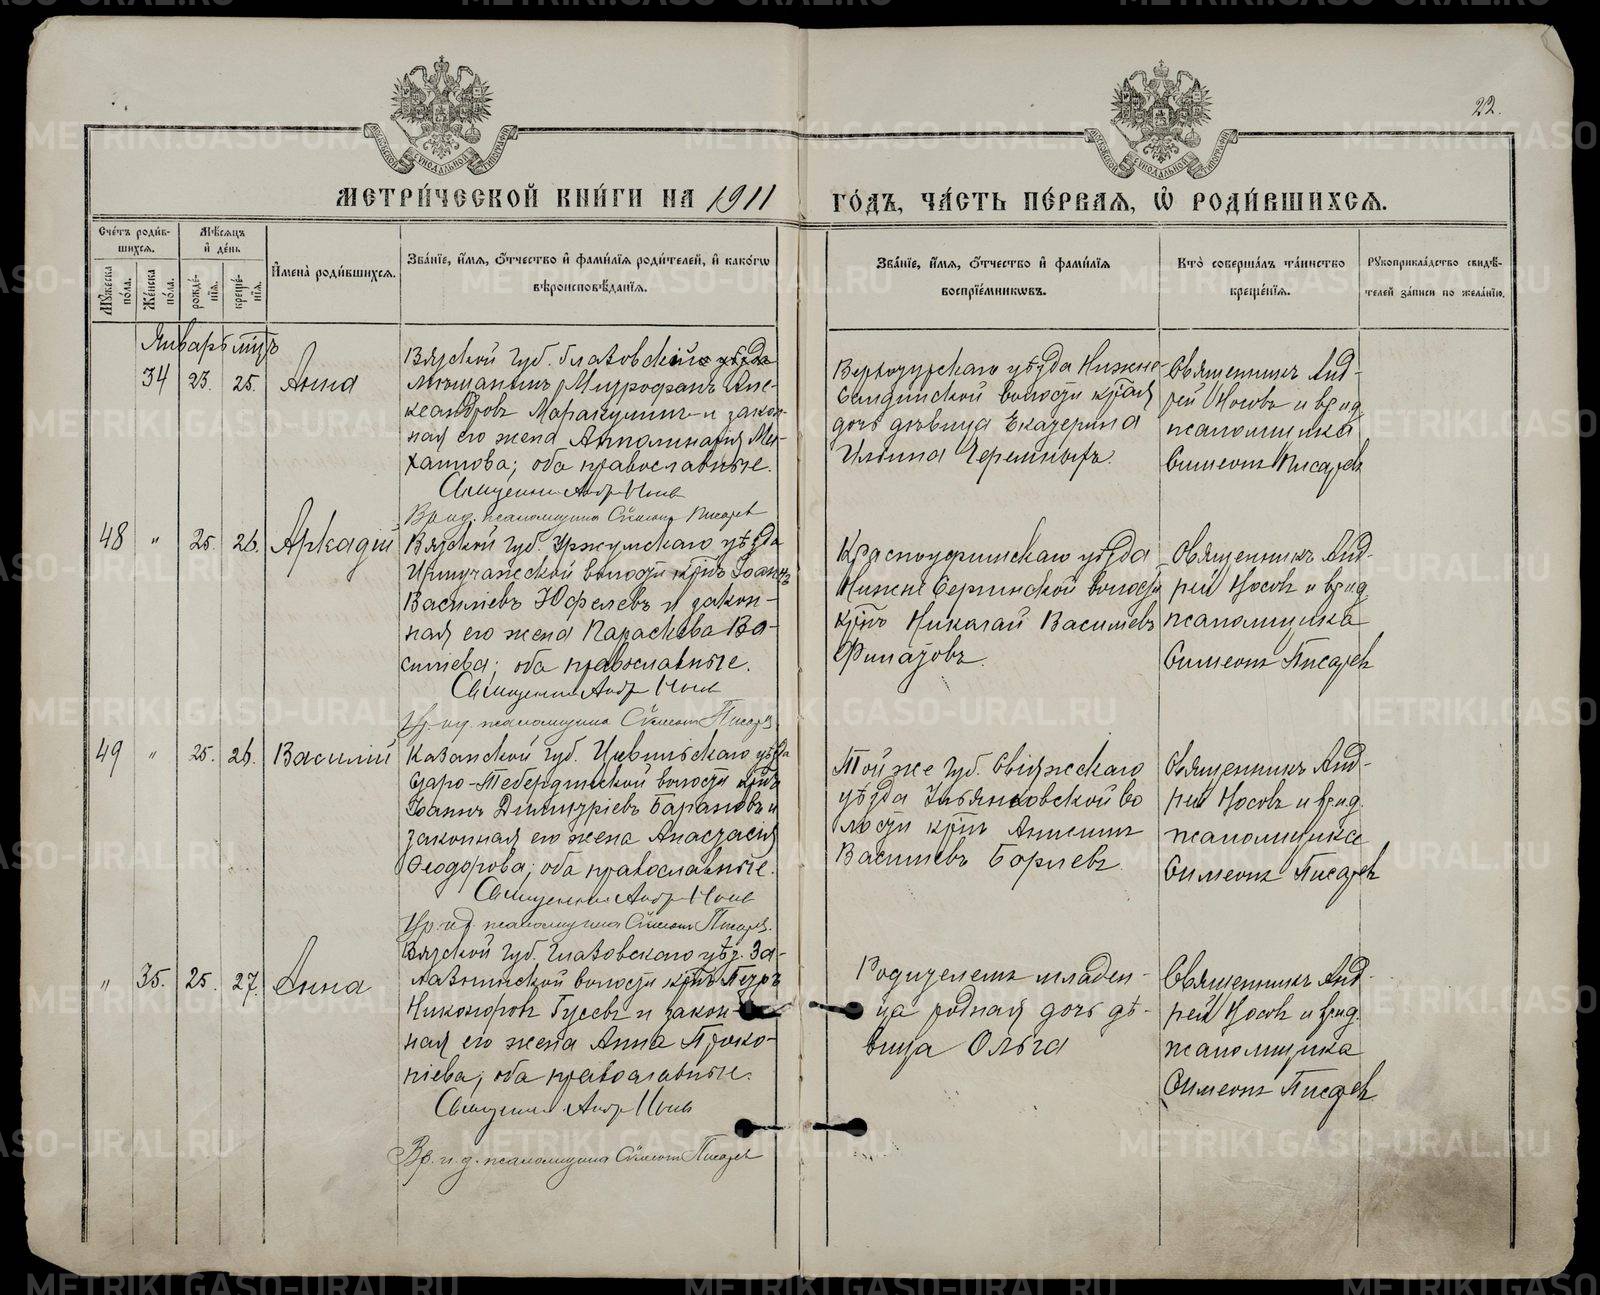 22.
МЕТРИ́ЧЕСКОЙ КНИ́ГИ НА 1911 ГО́ДЪ, ЧА́СТЬ ПЕ́РВАЯ, Ѡ҆ РОДИ́ВШИХСѦ.
Счетъ роди́вшихсѧ.
Мѣ́сяцъ и де́нь
Мꙋ́жеска по́ла.
Же́нска по́ла.
рожде́нїѧ.
креще́нїѧ.
И҆мена̀ роди́вшихсѧ.
Зва́нїе, и҆́мѧ, ѻ҆́тчество и҆ фами́лїѧ роди́телей, и҆ како́гѡ
вѣроисповѣ́данїѧ.
Зва́нїе, и҆́мѧ, ѻ҆́тчество и҆ фами́лїѧ
воспрїе́мникѡвъ.
Кто̀ соверша́лъ та́инство
креще́нїѧ.
Рꙋкоприкла́дство свидѣ́-
телей за́писи по жела́нїю.
Январь мцъ
34 23. 25. Анна
Вятской губ. Глазовскій
мѣщанинъ Митрофанъ Алек-
сандровъ Маракулинъ и закон-
ная его жена Апполинарія Ми-
хаилова; оба православные.
Священник Андр Носов
Вр. и д. псаломщика Симеон Писарев
Верхотурскаго уѣзда Нижне-
Салдинской волости крстая
дочь дѣвица Екатерина
Ильина Черемныхъ.
Священникъ Анд-
рей Носовъ и вр. и д.
псаломщика
Симеонъ Писаревъ
48 " 25. 26. Аркадій
Вятской губ. Уржумскаго уѣзда
волости крнъ Іоаннъ
Василіевъ Юферевъ и закон-
ная его жена Параскева Ва-
силіева; оба православные.
Священник Андр Носов
Вр. и д. псаломщика Симеон Писарев
Красноуфимскаго уѣзда
Нижне Сергинской волости
крнъ Николай Василіевъ
Филатовъ.
Священникъ Анд-
рей Носовъ и вр. и д.
псаломщика
Симеонъ Писаревъ
49 " 25. 26. Василій
Казанской губ. Цивильскаго уѣзда
Старо-Тябердинской волости крнъ
Іоаннъ Димитріевъ Барановъ и
законная его жена Анастасія
Ѳеодорова; оба православные.
Священник Андр Носов
Вр. и д. псаломщика Симеон Писарев
Той же губ. Свіяжскаго
уѣзда Ульянковской во
лости крнъ
Василіевъ
Священникъ Анд-
рей Носовъ и вр. и д.
псаломщика
Симеонъ Писаревъ
" 35. 25. 27. Анна
Вятской губ. Глазовскаго уѣз. За-
лазнинской волости крнъ Петръ
Никоноровъ Гусевъ и закон-
ная его жена Анна Проко-
піева; оба православные.
Священник Андр Носов
Вр. и. д. псаломщика Симеон Писарев
Родителемъ младен-
ца родная дочь дѣ-
вица Ольга
Священникъ Анд-
рей Носовъ и вр. и д.
псаломщика
Симеонъ Писаревъ
METRIKI.GASO-URAL.RU